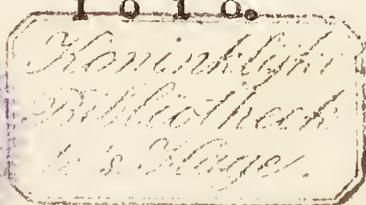 1 8 1 8.
Koninklijke
Bibliotheek
te 's Hage.